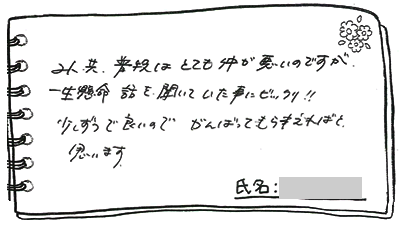 みん共、普段は とても 仲が 悪いのですが、
一生懸命 話を 聞いて いた事に ビックリ!!
少しずつで良いので がんばってもらえればと
思います
氏名: